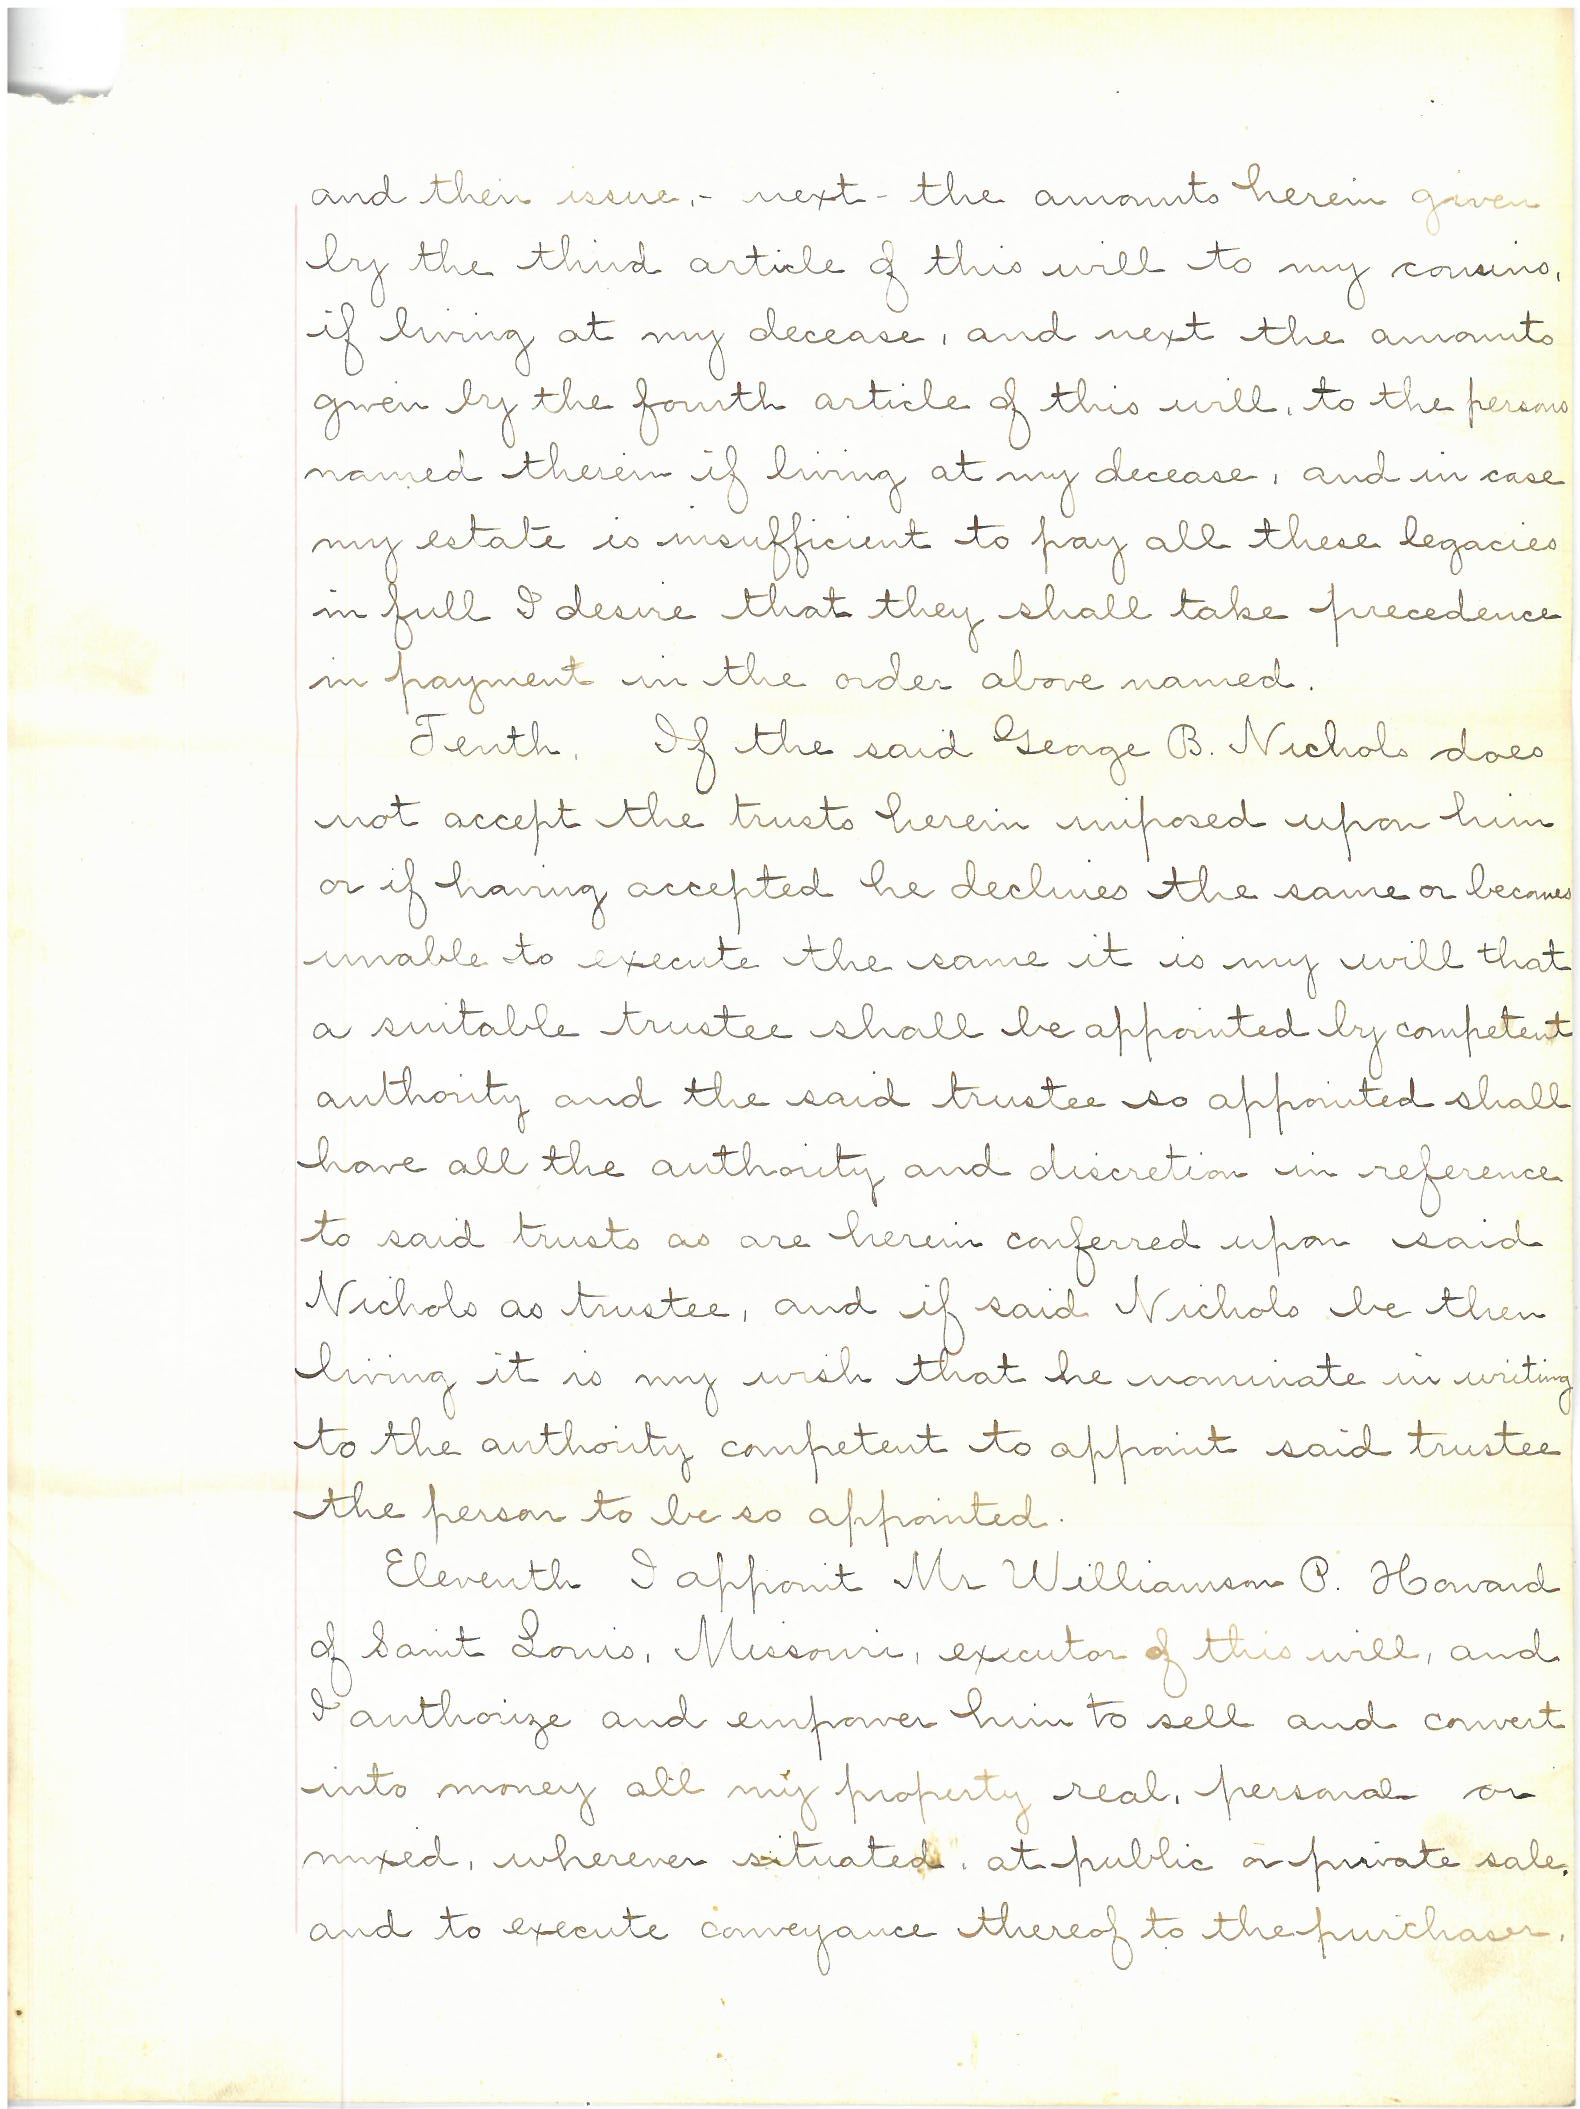 and their issue,- next - the amounts herein given
by the third article of this will to my cousins,
if living at my decease, and next the amounts
given by the fourth article of this will, to the persons
named therein if living at my decease, and in case
my estate is insufficient to pay all these legacies
in full I desire that they shall take precedence
in payment in the order above named.
Tenth. If the said George B. Nichols does
not accept the trusts herein imposed upon him
or if having accepted he declines the same or becomes
unable to execute the same it is my will that
a suitable trustee shall be appointed by competent
authority and the said trustee so appointed shall
have all the authority and discretion in reference
to said trusts as are herein conferred upon said
Nichols as trustee, and if said Nichols be then
living it is my wish that he nominate in writing
to the authority competent to appoint said trustee
the person to be so appointed.
Eleventh I appoint Mr Williamson P. Howard
of Saint Louis, Missouri, executor of this will, and
I authorize and empower him to sell and convert
into money all my property real, personal or
mixed, wherever situated, at public or private sale,
and to execute conveyance thereof to the purchaser.